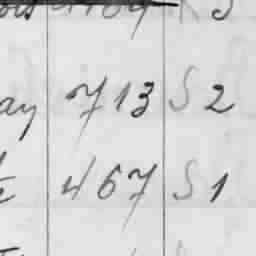 ay 713 S 2
467 S 1